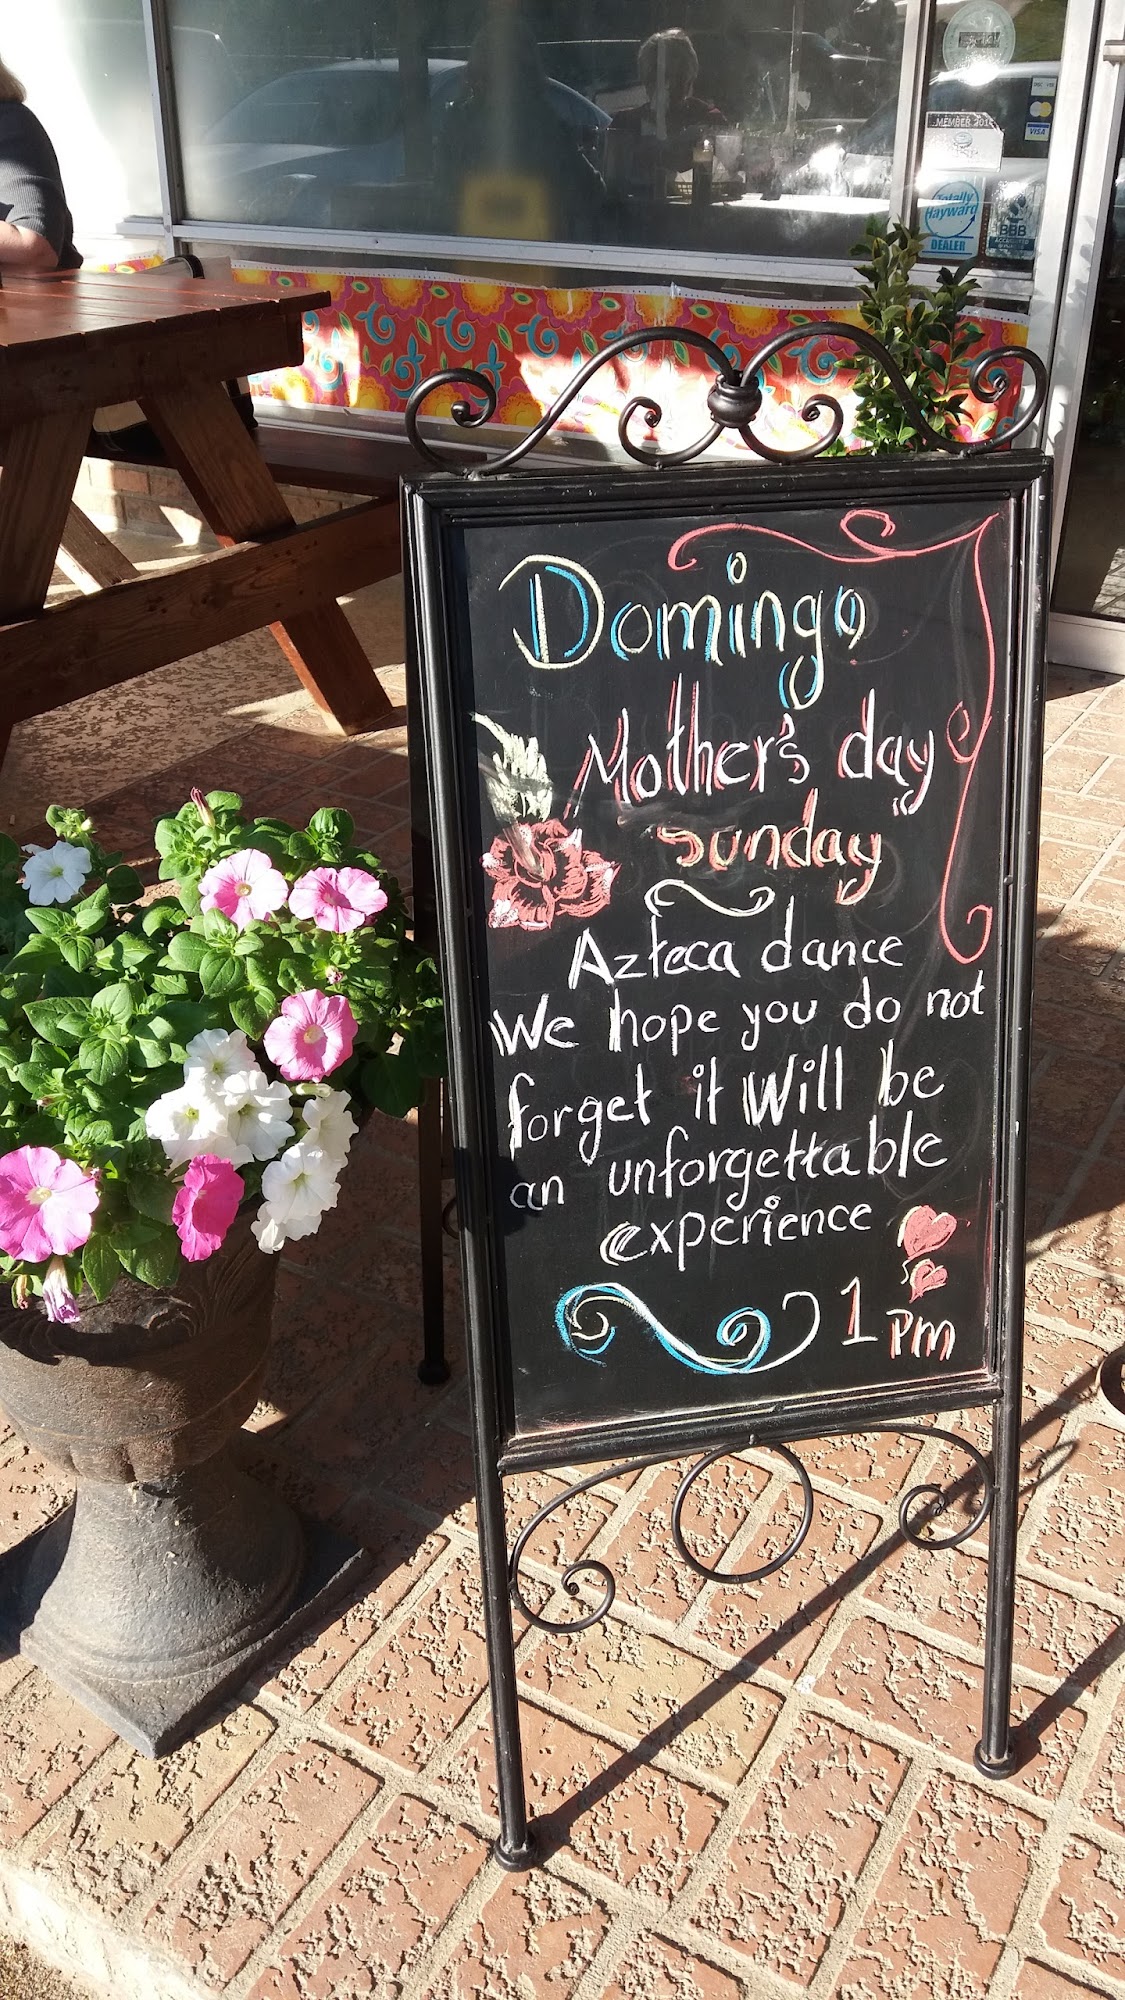 MEMBER
VISA
Totally
Hayward
DEALER
BBB
Domingo
Mother's day
"sunday"
Azteca dance
We hope you do not
forget it Will be
an unforgettable
experience
1 pm